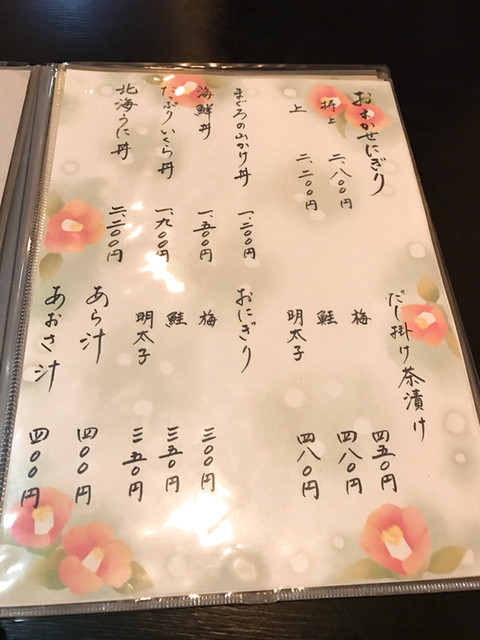 おまかせにぎり
極上 二、八〇〇円
上 二、二〇〇円
まぐろの山かけ丼 一、二〇〇円
海鮮丼 一、五〇〇円
たっぷりいくら丼 一、九〇〇円
北海うに丼 二、二〇〇円
だし掛け茶漬け
梅 四五〇円
鮭 四八〇円
明太子 四八〇円
おにぎり
梅 三〇〇円
鮭 三五〇円
明太子 三五〇円
あら汁 四〇〇円
あおさ汁 四〇〇円